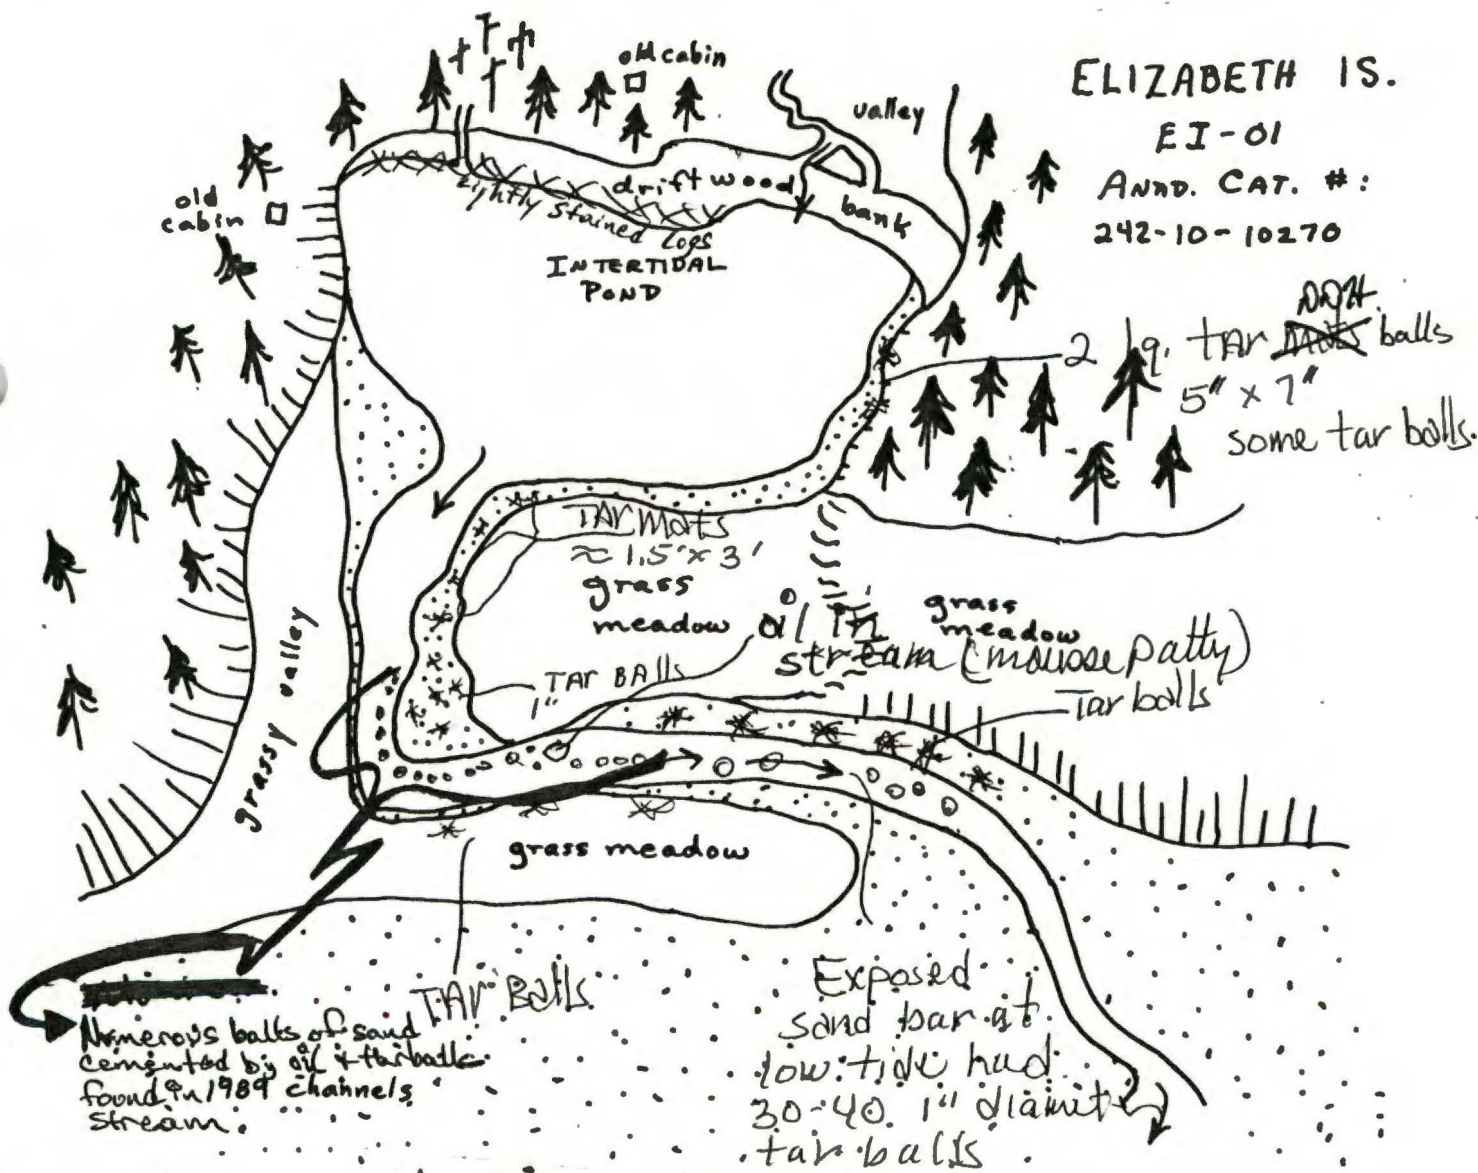 ELIZABETH IS.
EI-01
ANAD. CAT. #:
242-10-10270
old cabin
valley
old
cabin
driftwood
bank
Lightly stained Logs
INTERTIDAL
POND
2 lg. tar balls
5" x 7"
some tar balls.
TAR MATS
≈ 1.5' x 3'
grass
meadow
grass
meadow
oil in
stream (mousse patty)
TAR BALLS
1"
Tar balls
grassy valley
grass meadow
TAR BALLS
Numerous balls of sand
cemented by oil & tarballs
found in 1989 channels
stream.
Exposed
sand bar at
low tide had
30-40 1" diamit
tar balls